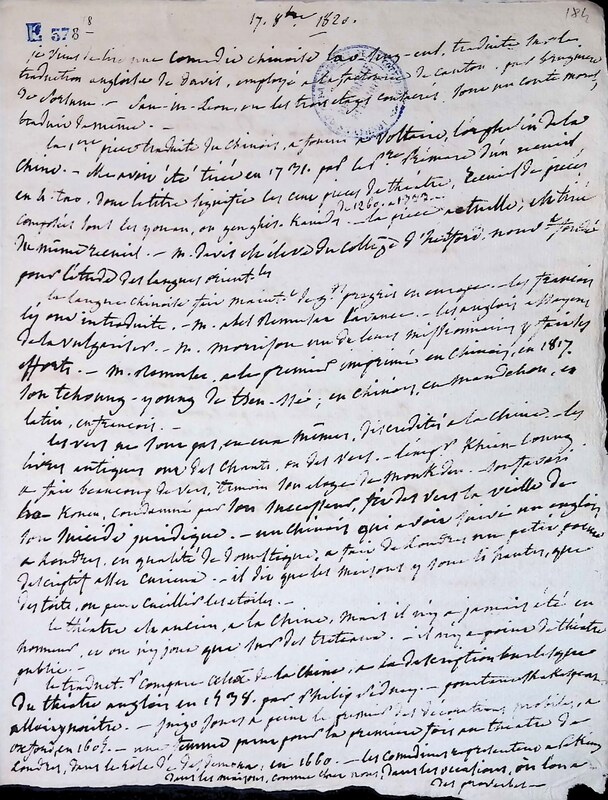 17. 8bre 1820.
184
K 378 18
je viens de lire une comédie chinoise lao-seng-eul, traduite sur la
traduction angloise de Davis, employé à la factorerie de canton, par bruguiere
de Sorsum. — San-iu-Leou, ou les trois étages consacrés, sont un conte moral,
traduit de même. —
la 1ere pièce traduite du chinois, a fourni à Voltaire, l'orphelin de la
chine. — Elle avoit été tirée en 1731. par les prémare d'un recueil,
en 40. vo, dont le titre signifie les cent pièces de théâtre, Recueil de pièces
composées sous les youan, ou genghis-Kanides de 1260 à 1333. — la pièce actuelle, est tirée
du même recueil. — m. davis est élève du collège d'Hertford, nouvt fondé
pour l'étude des langues orientles
la langue chinoise fait maintt de gds progrès en europe. — les françois
les ont introduits. — m. abel Remusat l'avance. — les anglois essayent
de la vulgariser. — m. morrison un de leurs missionnaires y fait ses
efforts. — m. Remusat, a le premier imprimé en chinois, en 1817.
son tchoung-young de tseu-ssé; en chinois, en mandchou, en
latin, en françois. —
les vers ne sont pas, en eux mêmes, discrédités à la chine. — les
livres antiques ont des chants, ou des vers. — l'empr Khian-Loung
a fait beaucoup de vers, témoin son éloge de moukden. — son favori
Ho-Konen, condamné par son successeur, fit des vers la veille de
son suicide juridique. — un chinois qui avoit suivi un anglois
à Londres, en qualité de domestique, a fait de Londres un petit poème
descriptif assez curieux. — il dit que les maisons y sont si hautes, que
des toits, on peut cueillir les étoiles. —
le théâtre est ancien, à la chine, mais il n'y a jamais été en
honneur, et on n'y joue que sur des tréteaux. — il n'y a point de théâtre
public. —
le traductr compare celui de la chine, à la description burlesque
du théâtre anglois en 1538. par Philip Sidney. — pourtant Shakespear
alloit naître. — inigo Jones a peint les premières décorations mobiles, à
oxford, en 1605. — une femme parut pour la première fois au théâtre de
Londres, dans le rôle de desdemona, en 1660. — les comédiens représentent à Péking
dans les maisons, comme chez nous, dans les occasions, où l'on a
des proverbes —